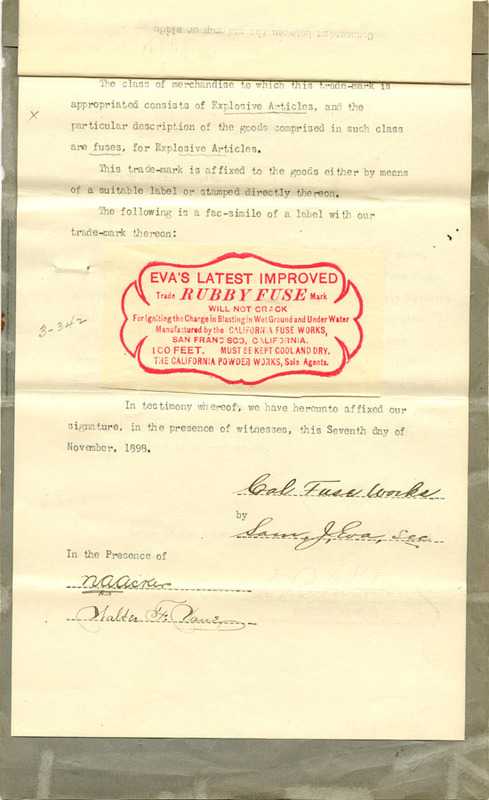 The class of merchandise to which this trade-mark is
appropriated consists of Explosive Articles, and the
particular description of the goods comprised in such class
are fuses, for Explosive Articles.
This trade-mark is affixed to the goods either by means
of a suitable label or stamped directly thereon.
The following is a fac-simile of a label with our
trade-mark thereon:
3-342
EVA'S LATEST IMPROVED
Trade RUBBY FUSE Mark
WILL NOT CRACK
For Igniting the Charge in Blasting in Wet Ground and Under Water
Manufactured by the CALIFORNIA FUSE WORKS,
SAN FRANCISCO, CALIFORNIA.
100 FEET. MUST BE KEPT COOL AND DRY.
THE CALIFORNIA POWDER WORKS, Sole Agents.
In testimony whereof, we have hereunto affixed our
signature, in the presence of witnesses, this Seventh day of
November, 1898.
Cal Fuse Works
by
Sam. J. Eva, Sec
In the Presence of
N A Acker
Walter F.